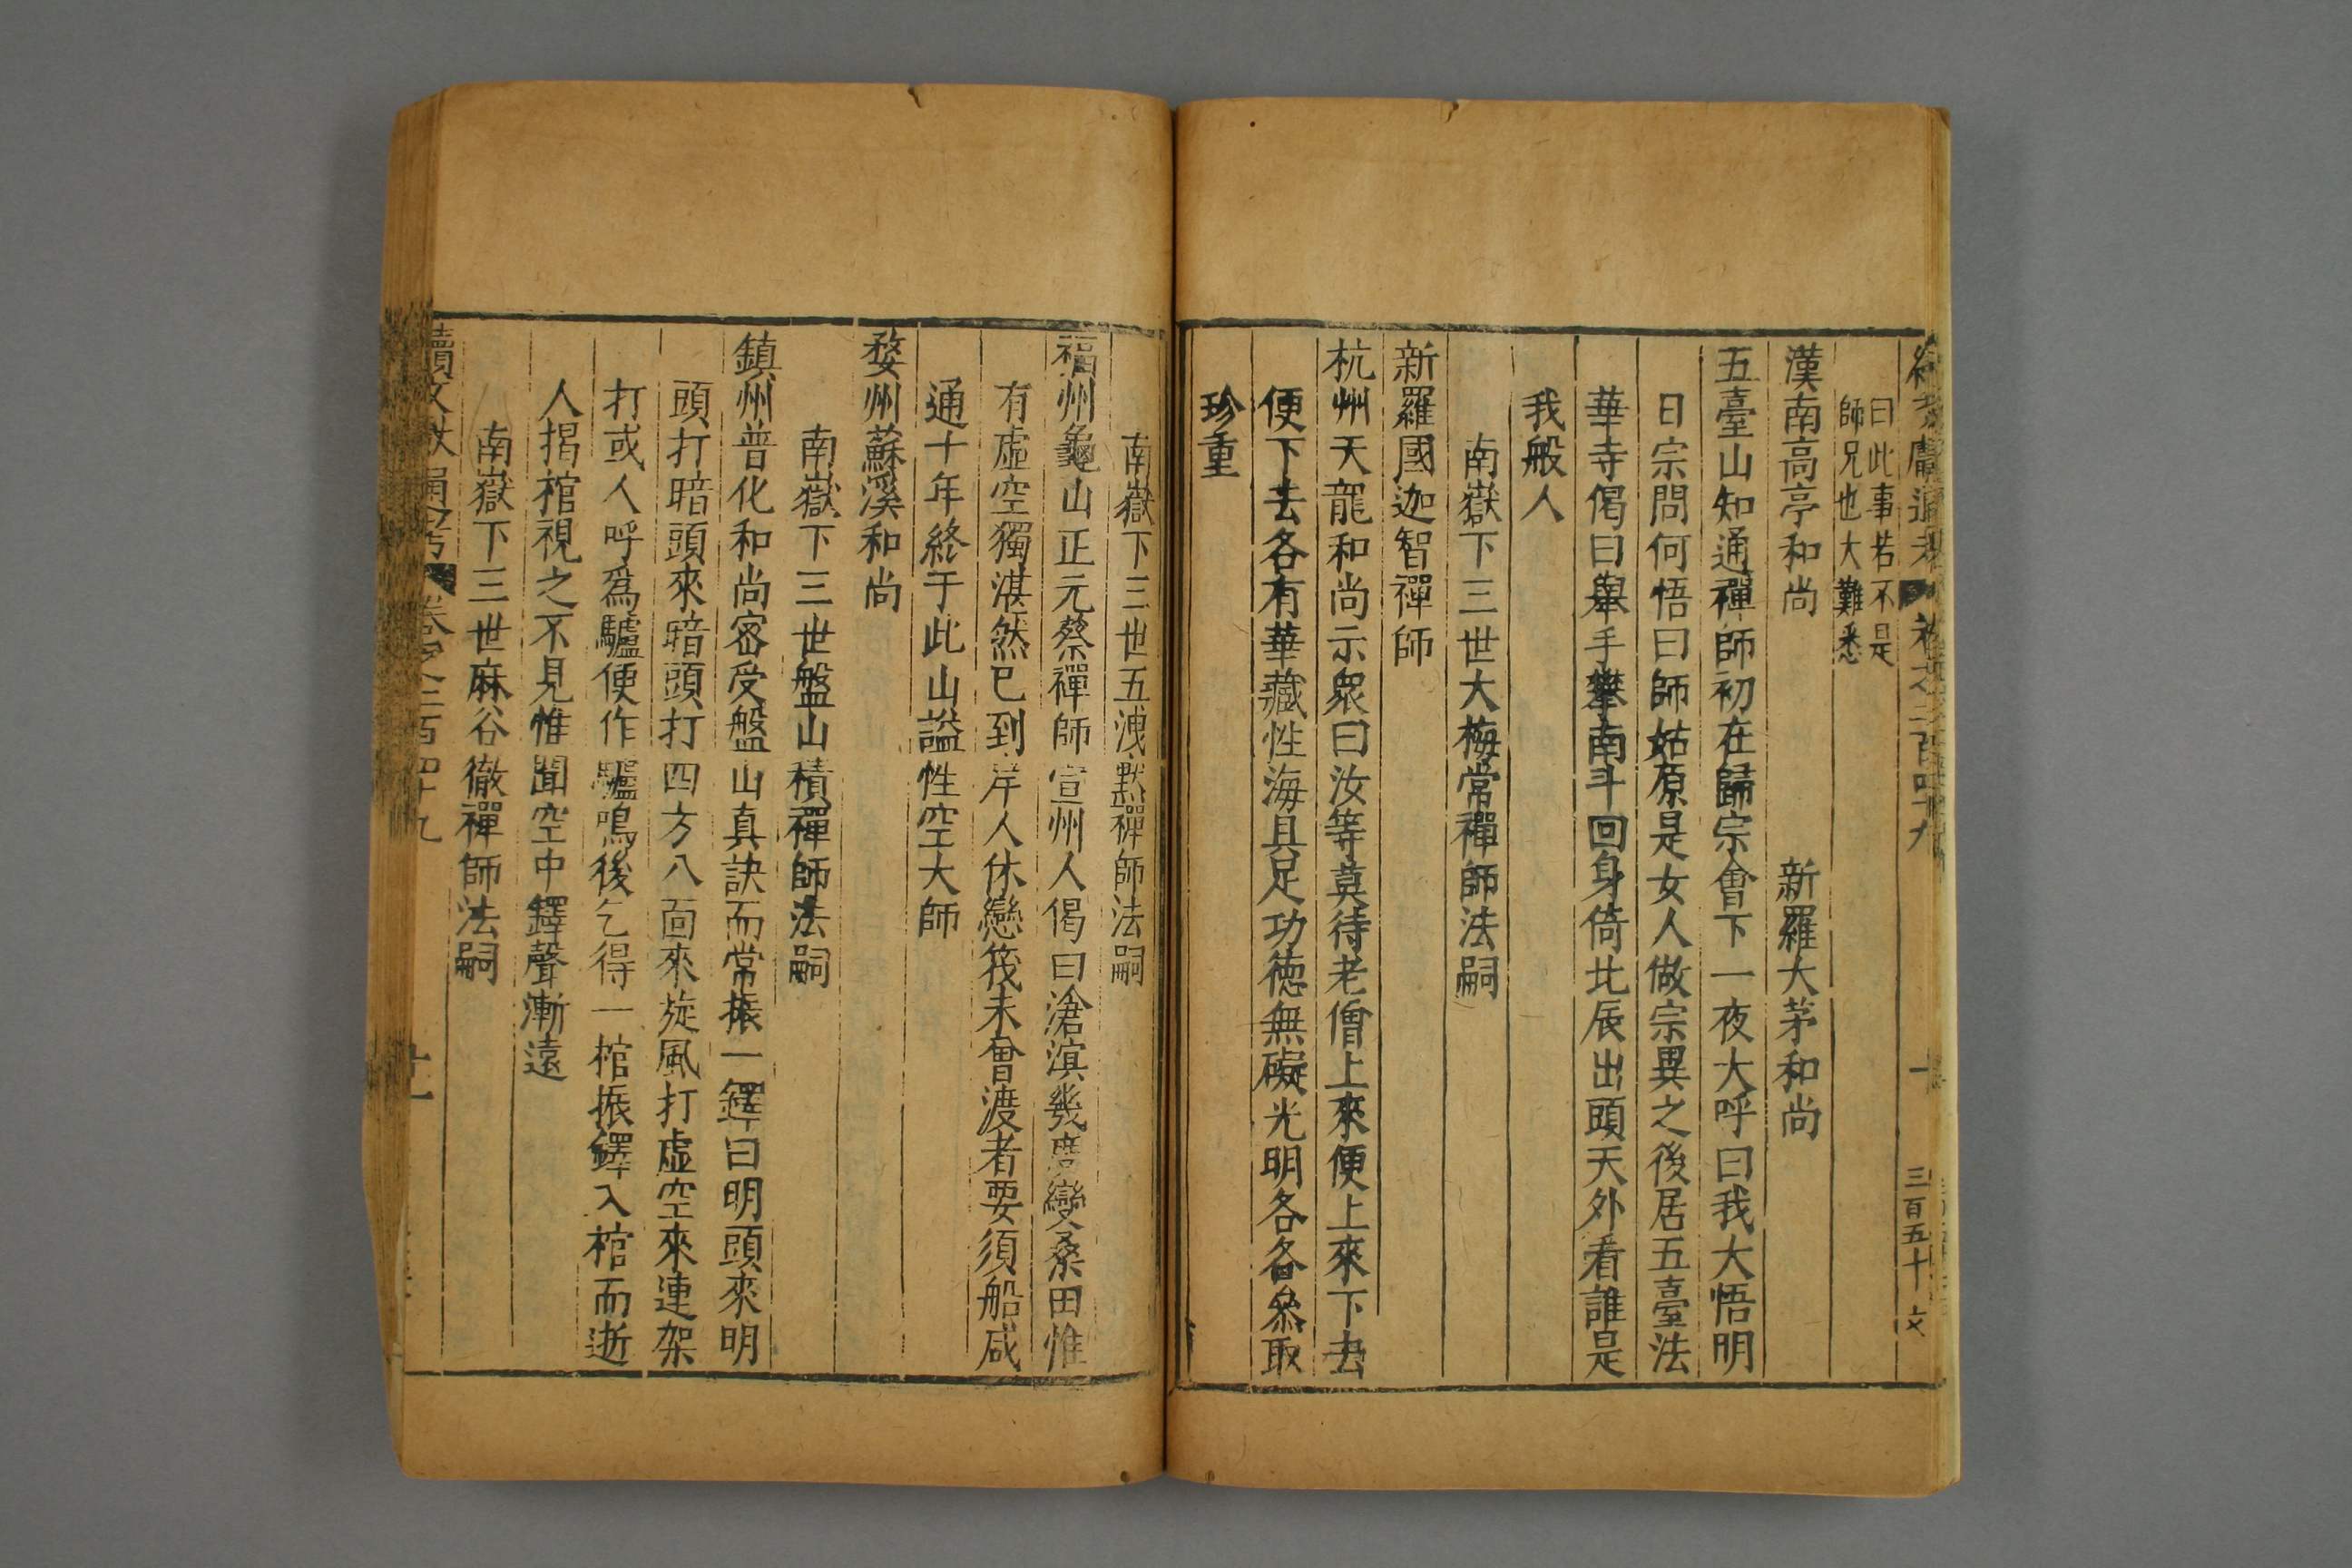 曰此事若不是
師兄也大難悉
漢南高亭和尚 新羅大茅和尚
五臺山知通禪師初在歸宗會下一夜大呼曰我大悟明
日宗問何悟曰師姑原是女人做宗異之後居五臺法
華寺偈曰舉手攀南斗回身倚北辰出頭天外看誰是
我般人
南嶽下三世大梅常禪師法嗣
新羅國迦智禪師
杭州天龍和尚示衆曰汝等莫待老僧上來便上來下去
便下去各有華藏性海具足功德無礙光明各各叅取
珍重
南嶽下三世五洩默禪師法嗣
福州龜山正元蔡禪師宣州人偈曰滄溟幾度變桑田惟
有虛空獨湛然已到岸人休戀筏未曾渡者要須船咸
通十年終于此山謚性空大師
婺州蘇溪和尚
南嶽下三世盤山積禪師法嗣
鎮州普化和尚密受盤山真訣而常振一鐸曰明頭來明
頭打暗頭來暗頭打四方八面來旋風打虛空來連架
打或人呼爲驢便作驢鳴後乞得一棺振鐸入棺而逝
人揭棺視之不見惟聞空中鐸聲漸遠
南嶽下三世麻谷徹禪師法嗣
續文獻通考 卷之二百四十九 十一